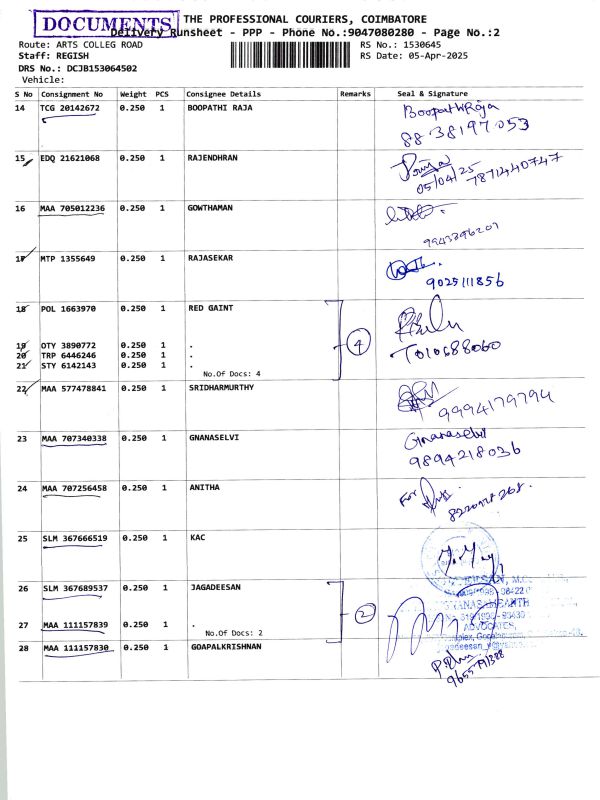 DOCUMENTS
THE PROFESSIONAL COURIERS, COIMBATORE
Delivery Runsheet - PPP - Phone No.:9047080280 - Page No.:2
Route: ARTS COLLEG ROAD
RS No.: 1530645
Staff: REGISH
RS Date: 05-Apr-2025
DRS No.: DCJB153064502
Vehicle:
S No Consignment No Weight PCS Consignee Details Remarks Seal & Signature
14 TCG 20142672 0.250 1 BOOPATHI RAJA BoopathiRaja
88 38197 053
15 EDQ 21621068 0.250 1 RAJENDHRAN
05/04/25 7871440747
16 MAA 705012236 0.250 1 GOWTHAMAN
9943396207
17 MTP 1355649 0.250 1 RAJASEKAR
9025111856
18 POL 1663970 0.250 1 RED GAINT
19 OTY 3890772 0.250 1 . 4
20 TRP 6446246 0.250 1 . 7010688060
21 STY 6142143 0.250 1 .
No.Of Docs: 4
22 MAA 577478841 0.250 1 SRIDHARMURTHY
9994179794
23 MAA 707340338 0.250 1 GNANASELVI Gnanaselvi
9894218036
24 MAA 707256458 0.250 1 ANITHA For
25 SLM 367666519 0.250 1 KAC
26 SLM 367689537 0.250 1 JAGADEESAN
2
27 MAA 111157839 0.250 1 .
ADVOCATES,
No.Of Docs: 2
28 MAA 111157830 0.250 1 GOAPALKRISHNAN